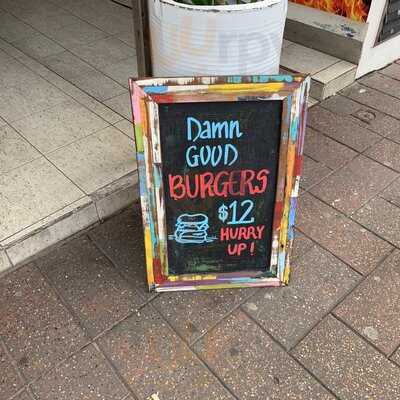 Damn
GOOD
BURGERS
$12
HURRY
UP!